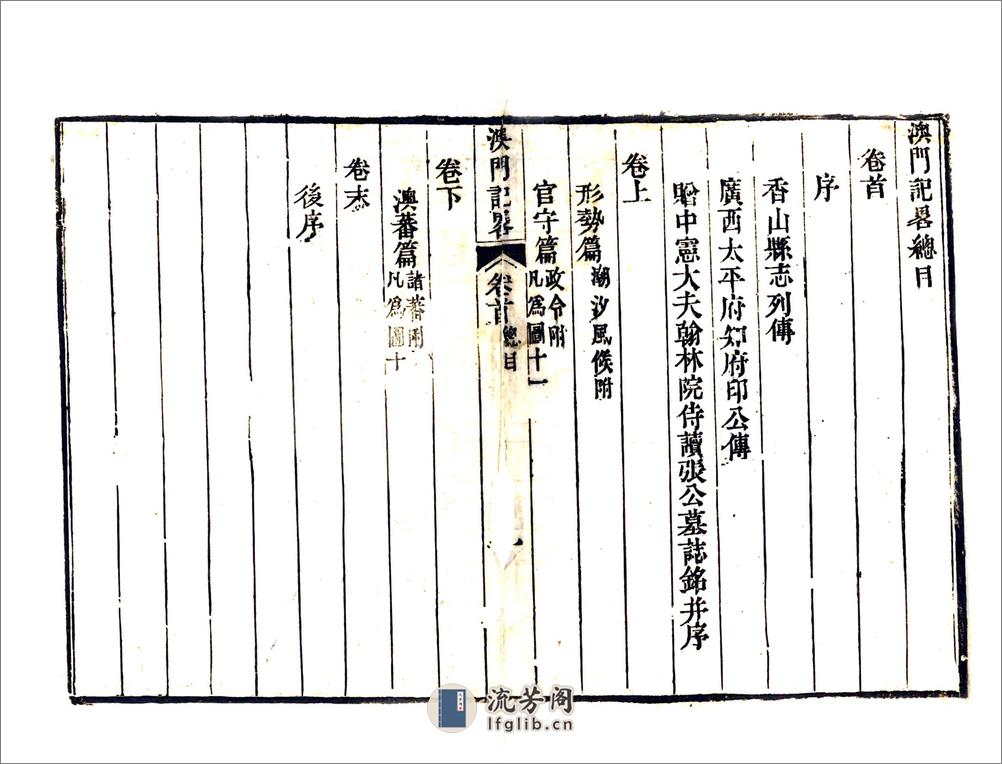 澳門記畧總目
卷首
序
香山縣志列傳
廣西太平府知府印公傳
贈中憲大夫翰林院侍讀張公墓誌銘并序
卷上
形勢篇潮汐風候附
官守篇政令附
凡爲圖十一
澳門記畧 卷首 總目 一
卷下
澳蕃篇諸蕃附
凡爲圖十
卷末
後序
流芳阁
lfglib.cn